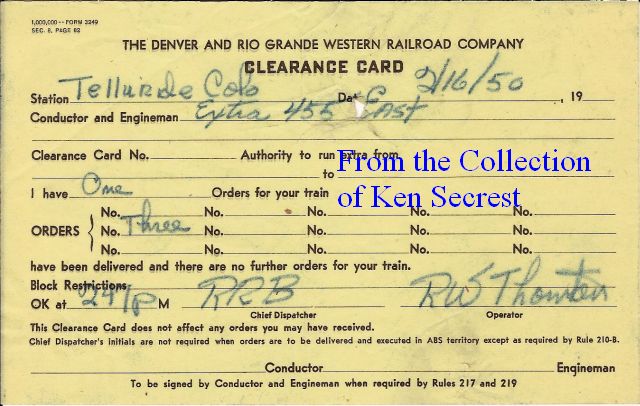 1,000,000--FORM 3249
SEC. 8, PAGE 82
THE DENVER AND RIO GRANDE WESTERN RAILROAD COMPANY
CLEARANCE CARD
Station Telluride Colo Date 2/16/50, 19
Conductor and Engineman Extra 455 East
Clearance Card No. Authority to run extra from
to
From the Collection
of Ken Secrest
I have One Orders for your train
No. No. No. No. No.
ORDERS { No. Three No. No. No. No.
No. No. No. No. No.
have been delivered and there are no further orders for your train.
Block Restrictions
OK at 241P M RRB RW
Chief Dispatcher Operator
This Clearance Card does not affect any orders you may have received.
Chief Dispatcher's initials are not required when orders are to be delivered and executed in ABS territory except as required by Rule 210-B.
Conductor Engineman
To be signed by Conductor and Engineman when required by Rules 217 and 219